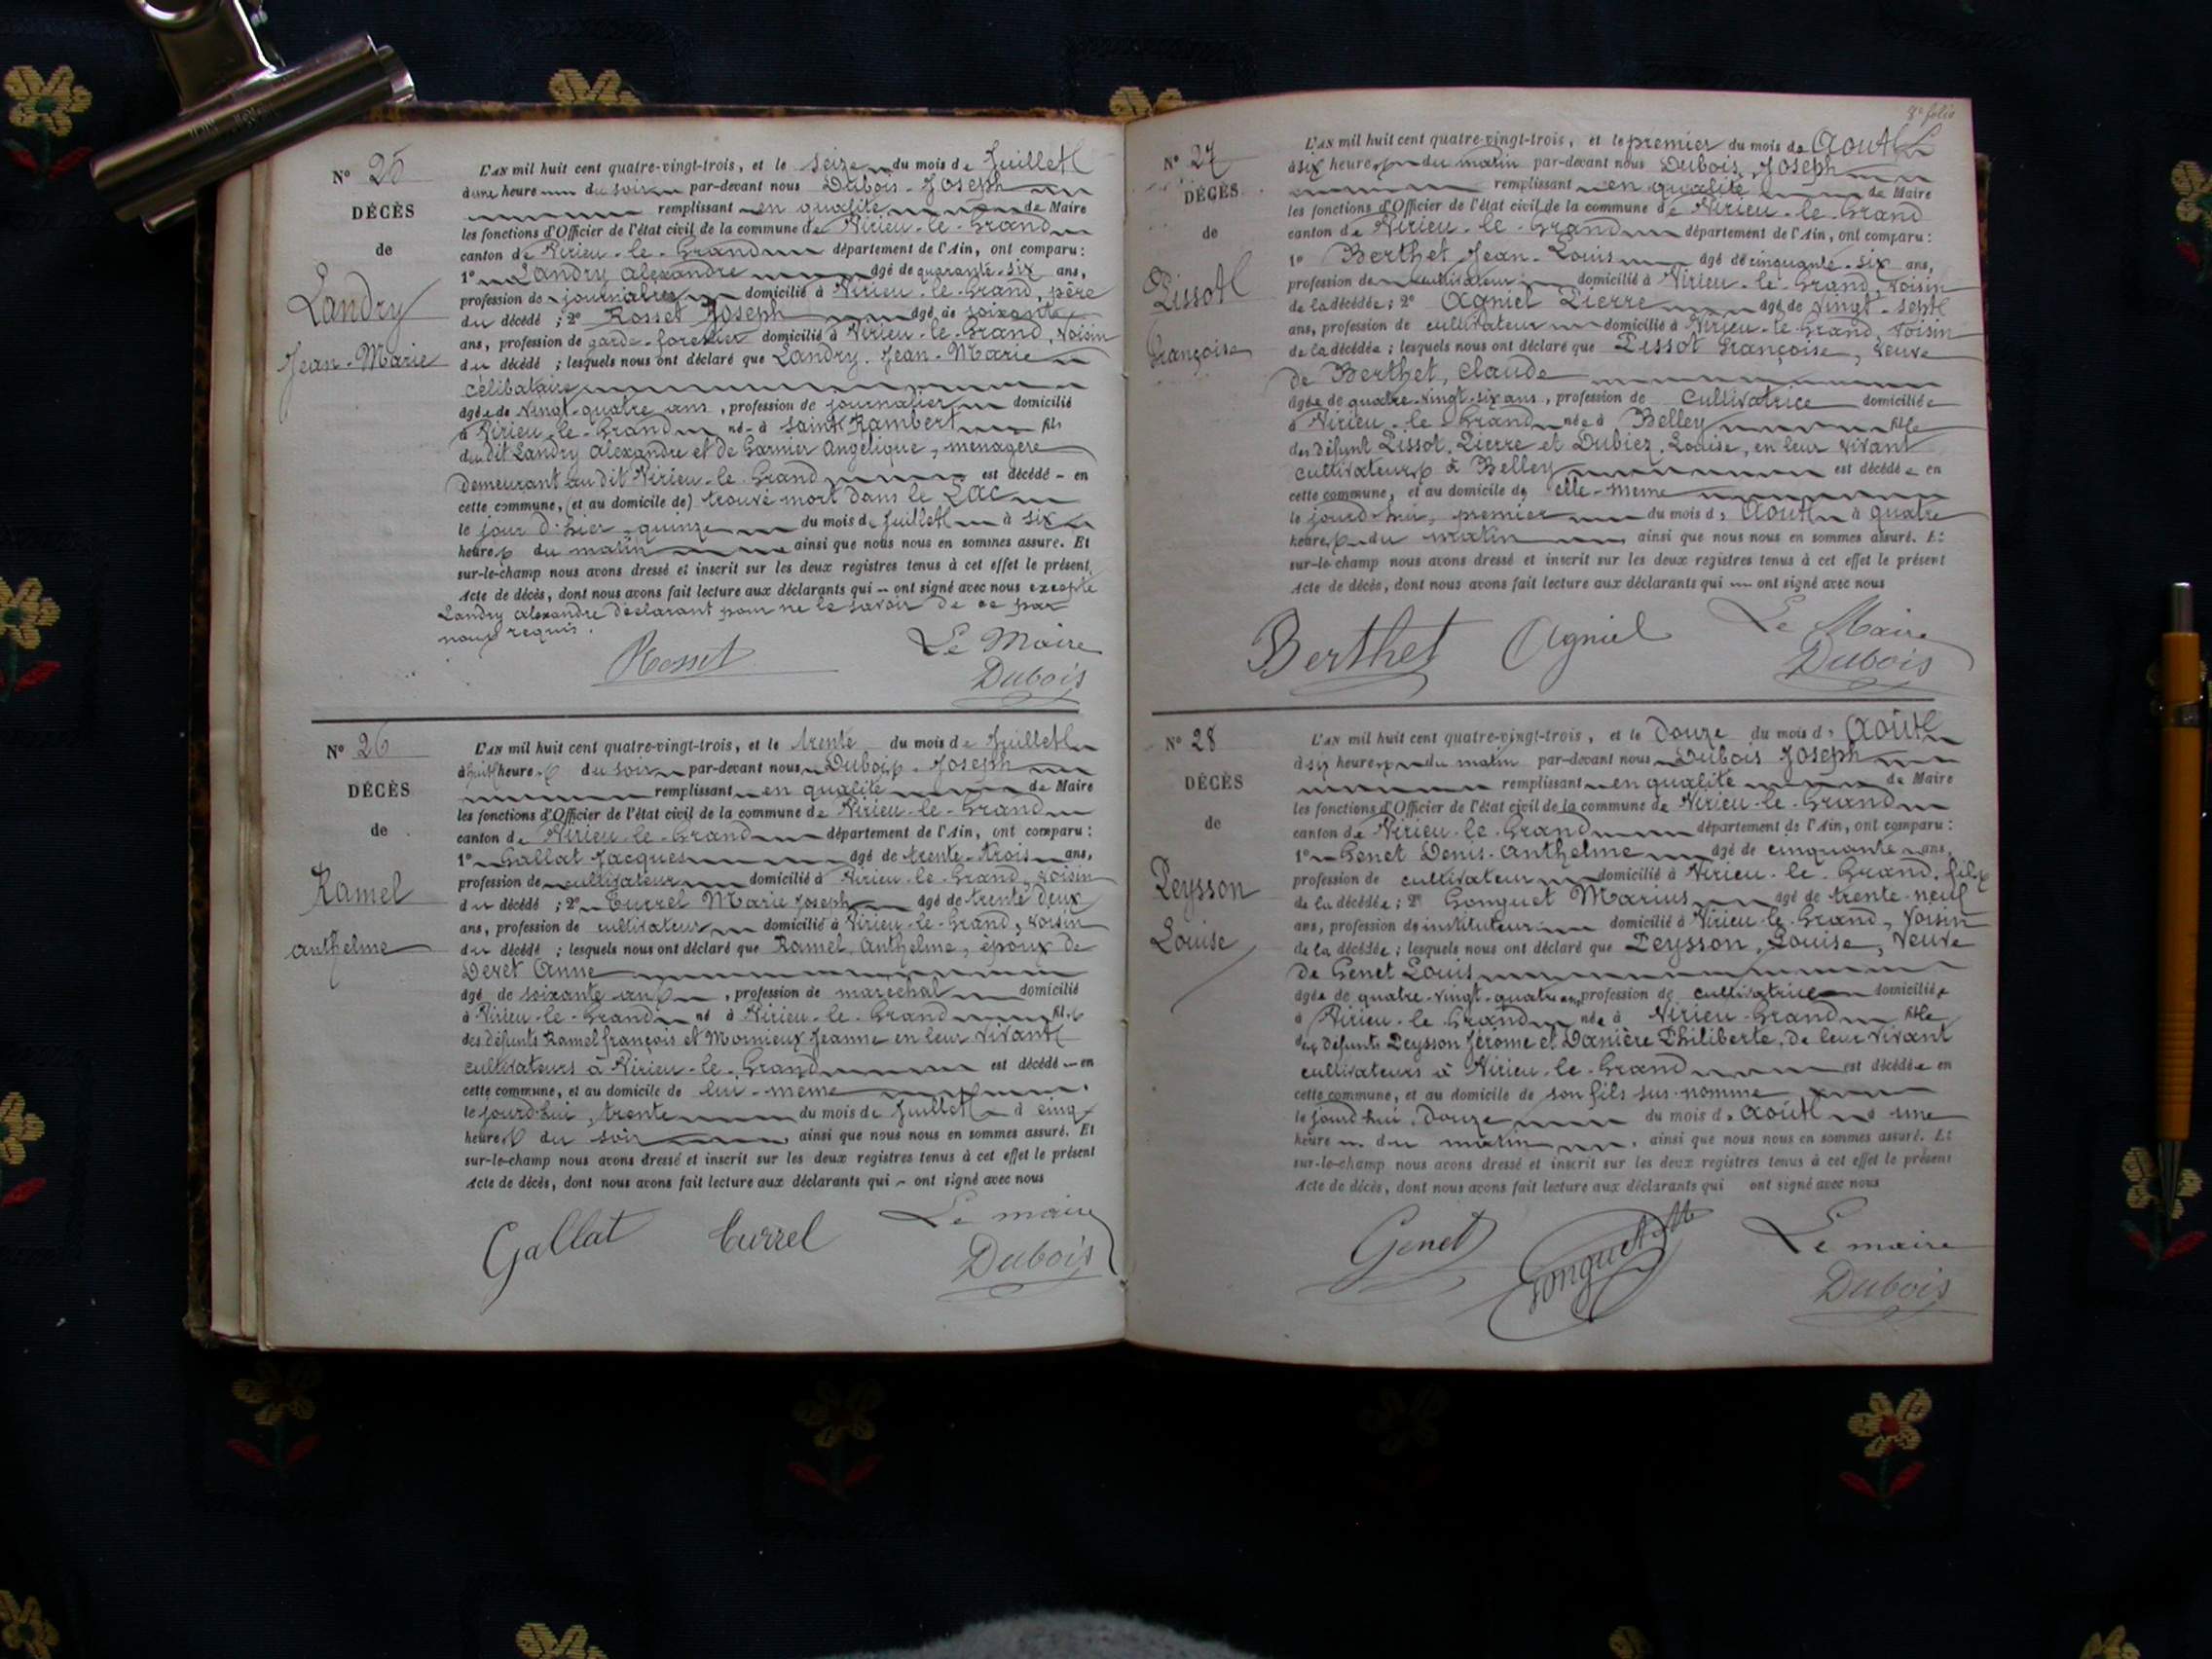 N° 25
DÉCÈS
de
Landry
Jean-Marie
L'AN mil huit cent quatre-vingt-trois, et le seize du mois de Juillet
à une heure du soir par-devant nous Dubois Joseph
remplissant en qualité de Maire
les fonctions d'Officier de l'état civil de la commune de Virieu-le-Grand
canton de Virieu-le-Grand département de l'Ain, ont comparu:
1° Landry Alexandre âgé de quarante-six ans,
profession de journalier domicilié à Virieu-le-Grand, père
du décédé ; 2° Rosset Joseph âgé de soixante
ans, profession de garde-forestier domicilié à Virieu-le-Grand, voisin
du décédé ; lesquels nous ont déclaré que Landry Jean-Marie
célibataire
âgé de vingt-quatre ans, profession de journalier domicilié
à Virieu-le-Grand né à Saint Rambert fils
du dit Landry Alexandre et de Garnier Angélique, ménagère
demeurant au dit Virieu-le-Grand est décédé en
cette commune, (et au domicile de) trouvé mort dans le Lac
le jour d'hier quinze du mois de Juillet à six
heures du matin ainsi que nous nous en sommes assuré. Et
sur-le-champ nous avons dressé et inscrit sur les deux registres tenus à cet effet le présent
Acte de décès, dont nous avons fait lecture aux déclarants qui ont signé avec nous excepté
Landry Alexandre déclarant pour ne le savoir de ce par
nous requis.
Rosset Le Maire
Dubois
N° 26
DÉCÈS
de
Ramel
Anthelme
L'AN mil huit cent quatre-vingt-trois, et le trente du mois de Juillet
à huit heures du soir par-devant nous Dubois Joseph
remplissant en qualité de Maire
les fonctions d'Officier de l'état civil de la commune de Virieu-le-Grand
canton de Virieu-le-Grand département de l'Ain, ont comparu:
1° Gallat Jacques âgé de trente-trois ans,
profession de cultivateur domicilié à Virieu-le-Grand, voisin
du décédé ; 2° Currel Marie Joseph âgé de trente deux
ans, profession de cultivateur domicilié à Virieu-le-Grand, voisin
du décédé ; lesquels nous ont déclaré que Ramel Anthelme, époux de
Deret Anne
âgé de soixante ans, profession de maréchal domicilié
à Virieu-le-Grand né à Virieu-le-Grand fils
des défunts Ramel françois et Mornieux Jeanne en leur vivant
cultivateurs à Virieu-le-Grand est décédé en
cette commune, et au domicile de lui-même
le jourd'hui, trente du mois de Juillet à cinq
heures du soir ainsi que nous nous en sommes assuré. Et
sur-le-champ nous avons dressé et inscrit sur les deux registres tenus à cet effet le présent
Acte de décès, dont nous avons fait lecture aux déclarants qui ont signé avec nous
Gallat Currel Le maire
Dubois
8e folio
N° 27
DÉCÈS
de
Pissot
Françoise
L'AN mil huit cent quatre-vingt-trois, et le premier du mois de Août
à six heures du matin par-devant nous Dubois Joseph
remplissant en qualité de Maire
les fonctions d'Officier de l'état civil de la commune de Virieu-le-Grand
canton de Virieu-le-Grand département de l'Ain, ont comparu:
1° Berthet Jean-Louis âgé de cinquante-six ans,
profession de cultivateur domicilié à Virieu-le-Grand, voisin
de la décédée ; 2° Agniel Pierre âgé de vingt-sept
ans, profession de cultivateur domicilié à Virieu-le-Grand, voisin
de la décédée ; lesquels nous ont déclaré que Pissot Françoise, veuve
de Berthet, Claude
âgée de quatre-vingt-six ans, profession de cultivatrice domiciliée
à Virieu-le-Grand née à Belley fille
des défunt Pissot, Pierre et Dubiez Louise, en leur vivant
cultivateurs à Belley est décédée en
cette commune, et au domicile de elle-même
le jourd'hui, premier du mois d' Août à quatre
heures du matin ainsi que nous nous en sommes assuré. Et
sur-le-champ nous avons dressé et inscrit sur les deux registres tenus à cet effet le présent
Acte de décès, dont nous avons fait lecture aux déclarants qui ont signé avec nous
Berthet Agniel Le Maire
Dubois
N° 28
DÉCÈS
de
Peysson
Louise
L'AN mil huit cent quatre-vingt-trois, et le Douze du mois d' Août
à six heures du matin par-devant nous Dubois Joseph
remplissant en qualité de Maire
les fonctions d'Officier de l'état civil de la commune de Virieu-le-Grand
canton de Virieu-le-Grand département de l'Ain, ont comparu:
1° Genet Denis-Anthelme âgé de cinquante ans,
profession de cultivateur domicilié à Virieu-le-Grand, fils
de la décédée ; 2° Gonguet Marius âgé de trente-neuf
ans, profession de instituteur domicilié à Virieu-le-Grand, voisin
de la décédée ; lesquels nous ont déclaré que Peysson, Louise, veuve
de Genet Louis
âgée de quatre-vingt-quatre ans, profession de cultivatrice domiciliée
à Virieu-le-Grand née à Virieu-Grand fille
des défunts Peysson Jérome et Danière Philiberte, de leur vivant
cultivateurs à Virieu-le-Grand est décédée en
cette commune, et au domicile de son fils sus-nommé
le jourd'hui, Douze du mois d' Août à une
heure du matin, ainsi que nous nous en sommes assuré. Et
sur-le-champ nous avons dressé et inscrit sur les deux registres tenus à cet effet le présent
Acte de décès, dont nous avons fait lecture aux déclarants qui ont signé avec nous
Genet Gonguet Le maire
Dubois